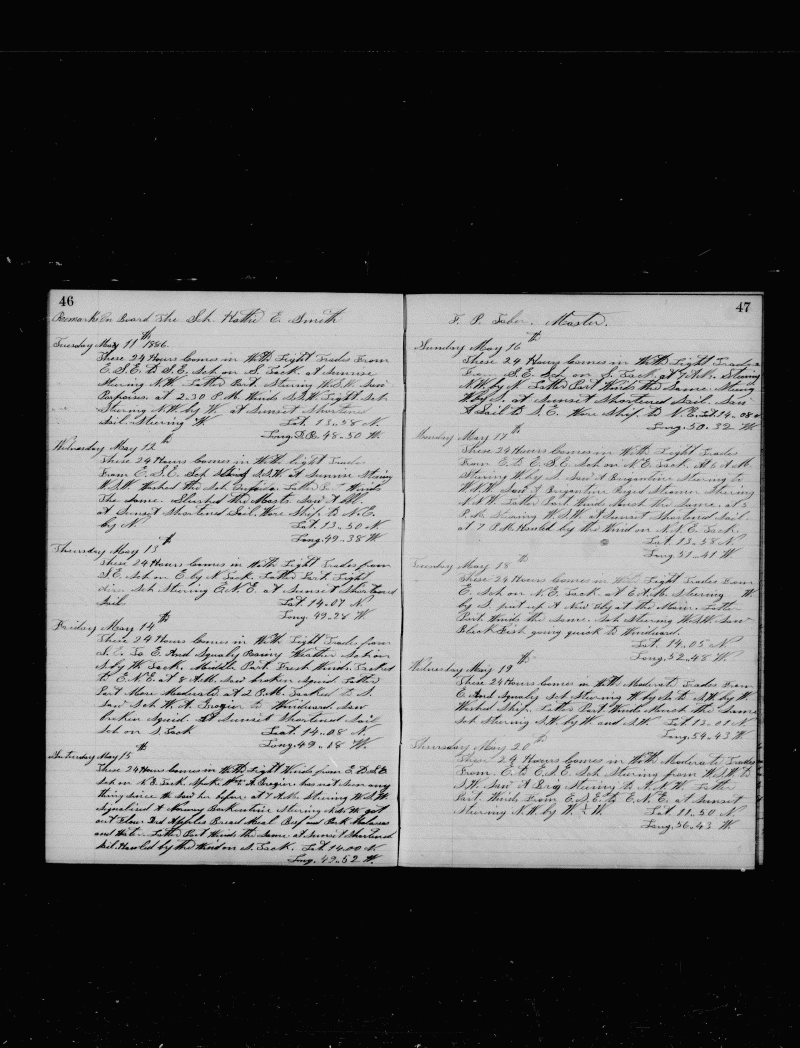 46
Remarks On Board The Sch. Hattie E. Smith
Tuesday May 11th 1886
These 24 Hours Comes in With Light Trades From
E.S.E. to S.E. Sch on S. Tack at Sunrise
Stering N.W. Latter Part Stering W.S.W. Saw
Porpoises. at 2.30 P.M. Winds S.S.W. Light Sch
Stering N.W. by W. at Sunset Shortened
Sail Stering W. Lat. 13..58 N.
Long. D.R. 48..50 W.
Wednesday May 12th
These 24 Hours Comes in With light Trades
From E.S.E. Sch S.S.W at Sunrise Stering
W.S.W. Washed the Sch Latter Part Winds
The Same. Slushed the Masts. Saw
at Sunset Shortened Sail. Wore Ship to N.E.
by N Lat. 13..50 N
Long. 49..38 W
Thursday May 13th
These 24 Hours Comes in With Light Trades from
S.E. Sch on E. by N Tack. Latter Part Light
Sch Stering E.N.E. at Sunset Shortened
Sail Lat. 14..07 N.
Long. 49..28 W.
Friday May 14th
These 24 Hours Comes in With Light Trades from
S.E. To E. And Squaly Rainy Weather Sch on
N. by W. Tack. Middle Part Fresh Winds. Tacked
to E.N.E. at 8 A.M. Saw broken Squid Latter
Part More Moderate at 2 P.M. Tacked to S.
Saw Sch W. A. Grozier to Windward Saw
broken Squid. At Sunset Shortened Sail
Sch on S. Tack Lat. 14..08 N.
Long. 49..18 W.
Saturday May 15th
These 24 Hours Comes in With Light Winds from E. to S.E.
Sch on N.E. Tack. Spoke W. A. Grozier has not Seen any
thing since We Saw her before. at 7 A.M. Stering W.S.W.
Signalized A Norway Barkentine stering N.N.W. got
out Flour Dried Apples Bread Meal Beef and Pork Molasses
and Water Latter Part Winds the Same. at Sunset Shortened
Sail. Hawled by the Wind on N. Tack. Lat. 14.00 N
Long. 49..52 W.
47
T. P. Taber. Master.
Sunday May 16th
These 24 Hours Comes in With Light Trades
From S.E. Sch on S. Tack, at 7 A.M. Stering
N.W. by N. Latter Part Winds the Same. Stering
W. by S. at Sunset Shortened Sail. Saw
A Sail to S.E. Wore Ship to N.E. Lat. 14..08 N
Long. 50..32 W
Monday May 17th
These 24 Hours Comes in With Light Trades
From E. to E.S.E. Sch on N.E. Tack. At 6 A.M.
Stering W. by S. Saw A Brigantine Stering to
W.S.W. Saw A Brigantine Riged Steamer Stering
S.S.W. Latter Part Winds Much the Same. at 3
P.M. Stering W.S.W. at Sunset Shortened Sail
at 7 P.M. Hawled by the Wind on N.N.E. Tack.
Lat. 13..58 N
Long. 51..41 W
Tuesday May 18th
These 24 Hours Comes in With Light Trades From
E. Sch on N.E. Tack. at 6 A.M. Stering W
by S. put up A New Fly at the Main. Latter
Part Winds the Same. Sch Stering W.S.W. Saw
Black Fish going quick to Windward.
Lat. 14..05 N
Long. 52..48 W
Wednesday May 19th
These 24 Hours Comes in With Moderate Trades From
E. And Squaly Sch Stering W. by S. to S.W. by W
Washed Ship. Latter Part Winds Much the Same
Sch Stering S.W. by W and S.W. Lat 13..01 N
Long. 54..43 W
Thursday May 20th
These 24 Hours Comes in With Moderate Trades
From E. to E.N.E. Sch Stering from W.S.W. to
S.W. Saw A Brig Stering to N.N.W. Latter
Part Winds From E.S.E. to E.N.E. at Sunset
Stering N.W. by W. 1/2 W. Lat. 11..50 N
Long. 56..43 W